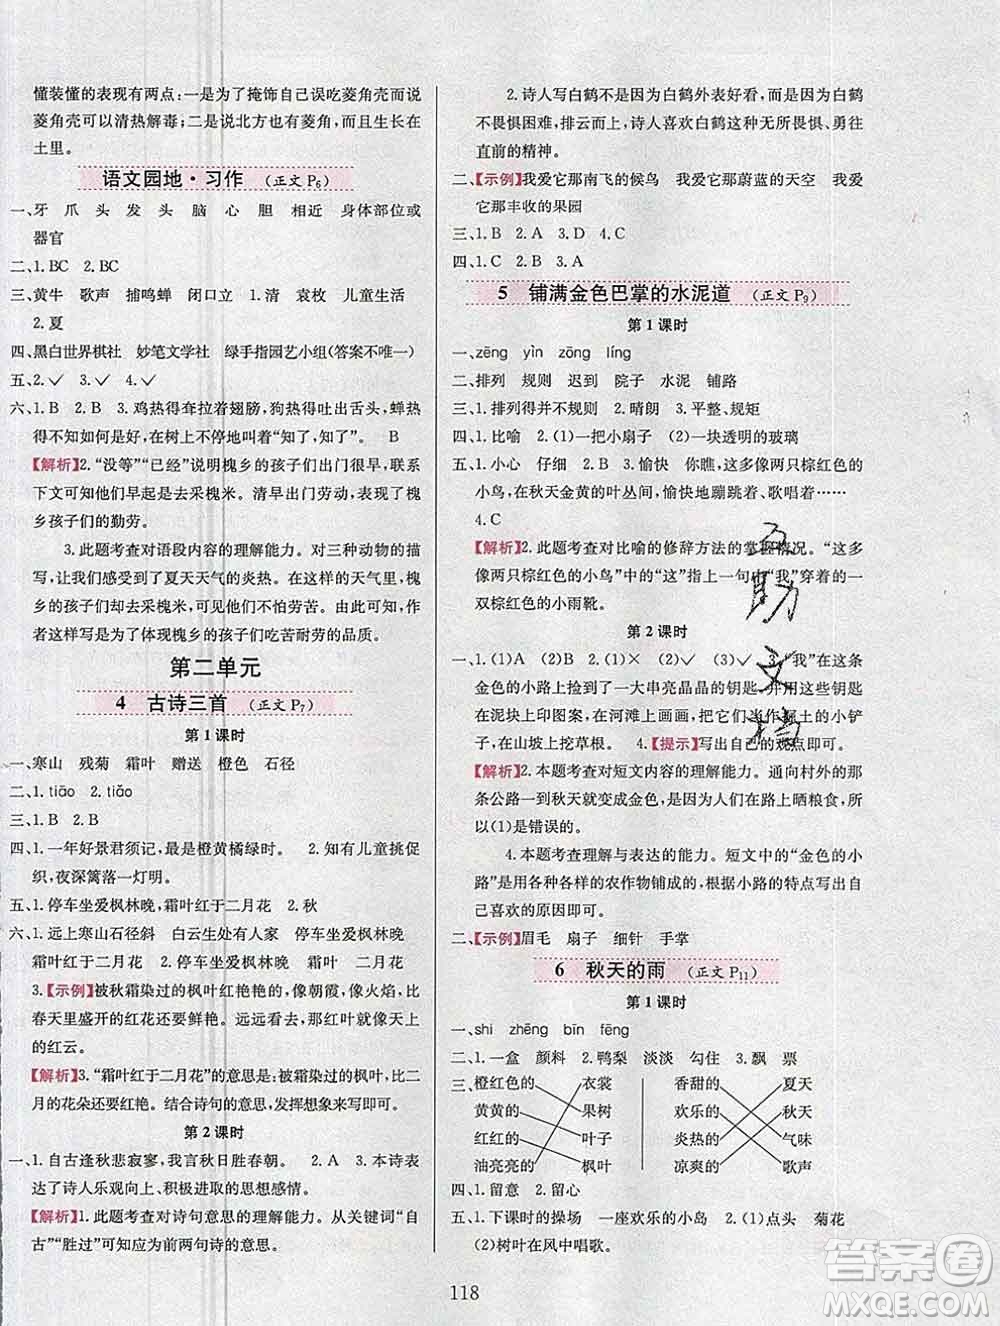 懂装懂的表现有两点:一是为了掩饰自己误吃菱角壳而说
菱角壳可以清热解毒;二是说北方也有菱角,而且生长在
土里。
语文园地·习作 (正文 P6)
一、牙 爪 头 发 头 脑 心 胆 相近 身体部位或
器官
二、1. BC 2. BC
三、黄牛 歌声 捕鸣蝉 闭口立 1. 清 袁枚 儿童生活
2. 夏
四、黑白世界棋社 妙笔文学社 绿手指园艺小组(答案不唯一)
五、2. ✓ 3. ✓ 4. ✓
六、1. B 2. B 3. 鸡热得耷拉着翅膀,狗热得吐出舌头,蝉热
得刚刚亮,就在树上不停地叫着“知了,知了”。 B
【解析】2. “没等”“已经”说明槐乡的孩子们出门很早,联系
下文可知他们早起是去采槐米。清早出门劳动,表现了槐
乡孩子们的勤劳。
3. 此题考查对语段内容的理解能力。对三种动物的描
写,让我们感受到了夏天天气的炎热。在这样的天气里,槐
乡的孩子们却去采槐米,可见他们不怕劳苦。由此可以看
出,作者这样写是为了体现槐乡的孩子们吃苦耐劳的品质。
第二单元
4 古诗三首 (正文 P7)
第 1 课时
一、寒山 残菊 霜叶 赠送 橙色 石径
二、1. tiāo 2. tiǎo
三、1. B 2. B
四、1. 一年好景君须记,最是橙黄橘绿时。 2. 知有儿童挑促
织,夜深篱落一灯明。
五、1. 停车坐爱枫林晚,霜叶红于二月花 2. 秋
六、1. 远上寒山石径斜 白云生处有人家 停车坐爱枫林晚
霜叶红于二月花 2. 停车坐爱枫林晚 霜叶红于二月花
3. 【示例】被秋霜染过的枫叶红艳艳的,像朝霞,像火焰,比
春天里盛开的红花还要鲜艳。远远看去,红叶就像天上的
红云。
【解析】3. “霜叶红于二月花”的意思是:被秋霜染过的枫叶,比二
月的花朵还要红艳。结合诗句的意思,发挥想象来写即可。
第 2 课时
一、1. 自古逢秋悲寂寥,我言秋日胜春朝。 2. A 3. 本诗表
达了诗人乐观向上、积极进取的思想感情。
【解析】1. 此题考查对诗句意思的理解能力。从关键词“自
古”“胜过”可知应为前两句诗的意思。
2. 诗人写白鹤不是因为白鹤外表好看,而是因为白鹤
不畏惧困难,排云而上,诗人喜欢白鹤无所畏惧、勇往
直前的精神。
二、【示例】我爱它那南飞的候鸟 我爱它那蔚蓝的天空 我爱
它那丰收的果园
三、1. B 2. A 3. D 4. C
四、1. C 2. B 3. A
5 铺满金色巴掌的水泥道 (正文 P9)
第 1 课时
一、zēng yìn zōng líng
二、排列 规则 迟到 院子 水泥 铺路
三、1. 排列得并不规则 2. 晴朗 3. 平整、规矩
四、1. 比喻 2. (1)一把小扇子 (2)一块透明的玻璃
五、1. 小心 仔细 2. B 3. 愉快 你瞧,这多像两只棕红色的
小鸟,在秋天金黄的叶丛间,愉快地蹦跳着、歌唱着……
4. C
【解析】2. 此题考查对比喻的修辞方法的掌握情况。“这多
像两只棕红色的小鸟”中的“这”指上一句中“我”穿着的一
双棕红色的小雨靴。
第 2 课时
一、1. (1)A (2)B 2. (1)× (2)✓ 3. “我”在这条
金色的小路上捡到了一大串亮晶晶的钥匙,并用这些钥匙
在泥块上印图案,在河滩上画画,把它们当作挖土的小铲
子,在山坡上挖草根。 4. 【提示】写出自己的观点即可。
【解析】2. 本题考查对短文内容的理解能力。通向村外的那
条公路一到秋天就变成金色,是因为人们在路上晒粮食,所
以(1)是错误的。
4. 本题考查理解与表达的能力。短文中的“金色的小
路”是由各种各样的农作物铺成的,根据小路的特点写出自
己喜欢的原因即可。
二、【示例】眉毛 扇子 细针 手掌
6 秋天的雨 (正文 P11)
第 1 课时
一、shi zhēng bīn fēng
二、1. 一盒 颜料 2. 鸭梨 淡淡 勾住 3. 飘 票
三、橙红色的 衣裳 香甜的 夏天
黄黄的 果树 欢乐的 秋天
红红的 叶子 炎热的 气味
油亮亮的 枫叶 凉爽的 歌声
四、1. 留意 2. 留心
五、1. 下课时的操场 一座欢乐的小岛 2. (1)点头 菊花
(2)树叶在风中唱歌。
互
助
文
档
118
答案圈
MXQE.COM